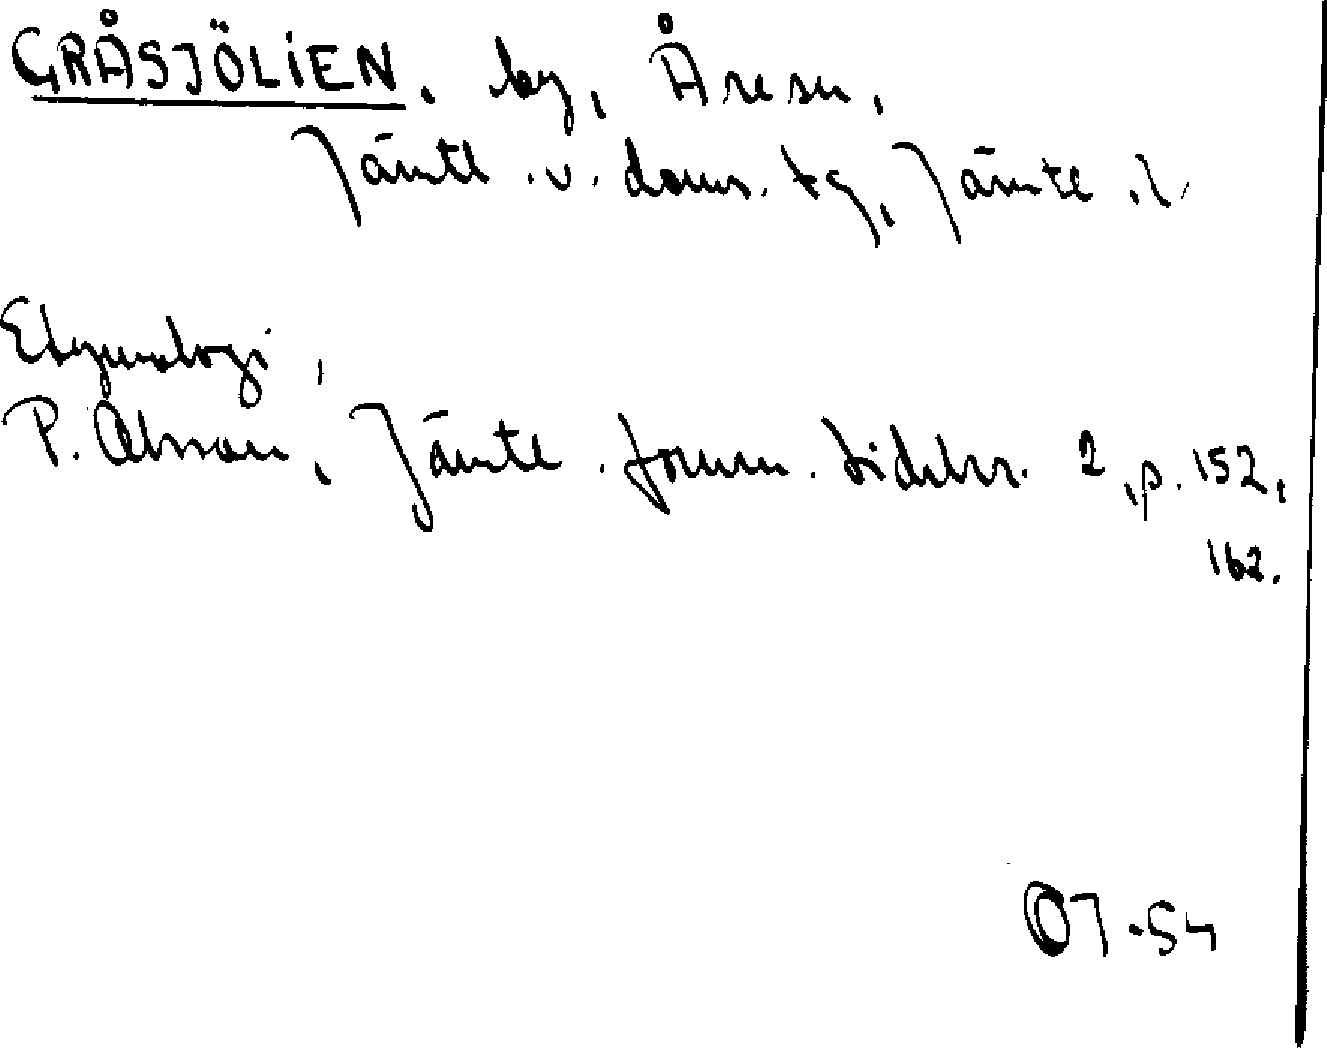 GRÅSJÖLIEN, by, Åresn,
Jämtl. v. doms. tg, Jämtl. l.
Etymologi,
P. Olsson, Jämtl. fornm. tidskr. 2, p. 152,
162.
OJ-54